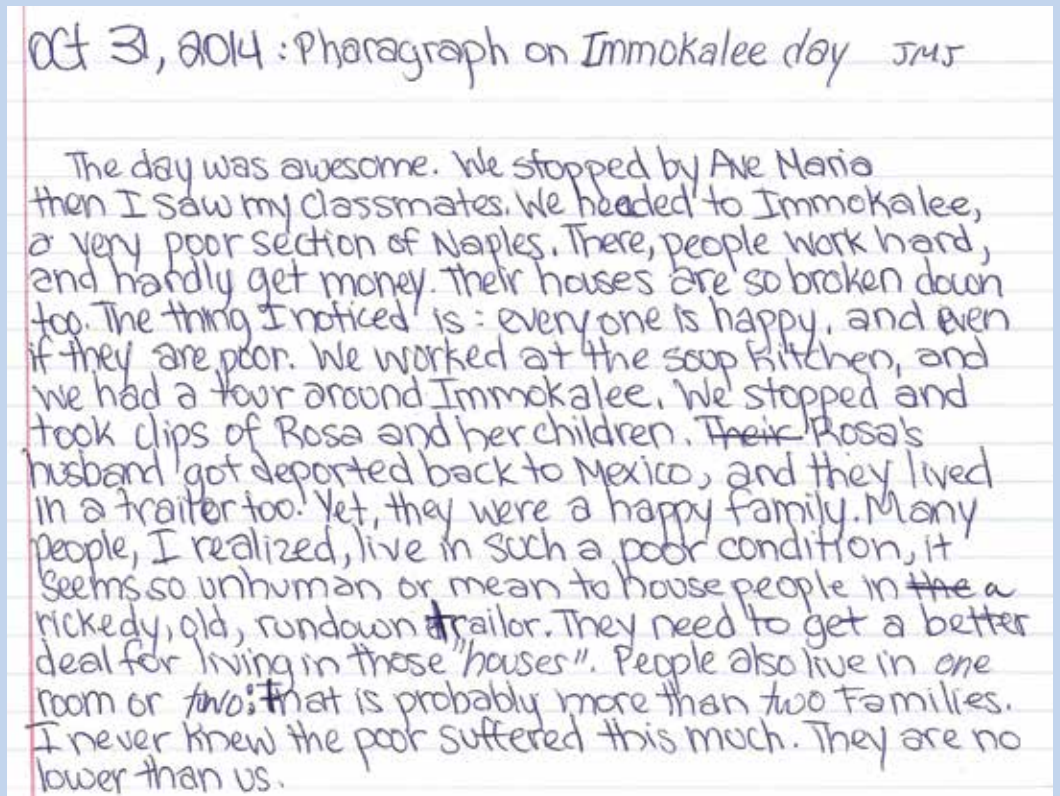 Oct 31, 2014: Pharagraph on Immokalee day JMJ
The day was awesome. We stopped by Ave Maria
then I saw my classmates. We headed to Immokalee,
a very poor section of Naples. There, people work hard,
and hardly get money. Their houses are so broken down
too. The thing I noticed is: everyone is happy, and even
if they are poor. We worked at the soup kitchen, and
we had a tour around Immokalee. We stopped and
took clips of Rosa and her children. Their Rosa's
husband got deported back to Mexico, and they lived
in a trailer too! Yet, they were a happy family. Many
people, I realized, live in such a poor condition, it
seems so unhuman or mean to house people in the a
rickedy, old, rundown trailor. They need to get a better
deal for living in those "houses". People also live in one
room or two; that is probably more than two Families.
I never knew the poor suffered this much. They are no
lower than us.